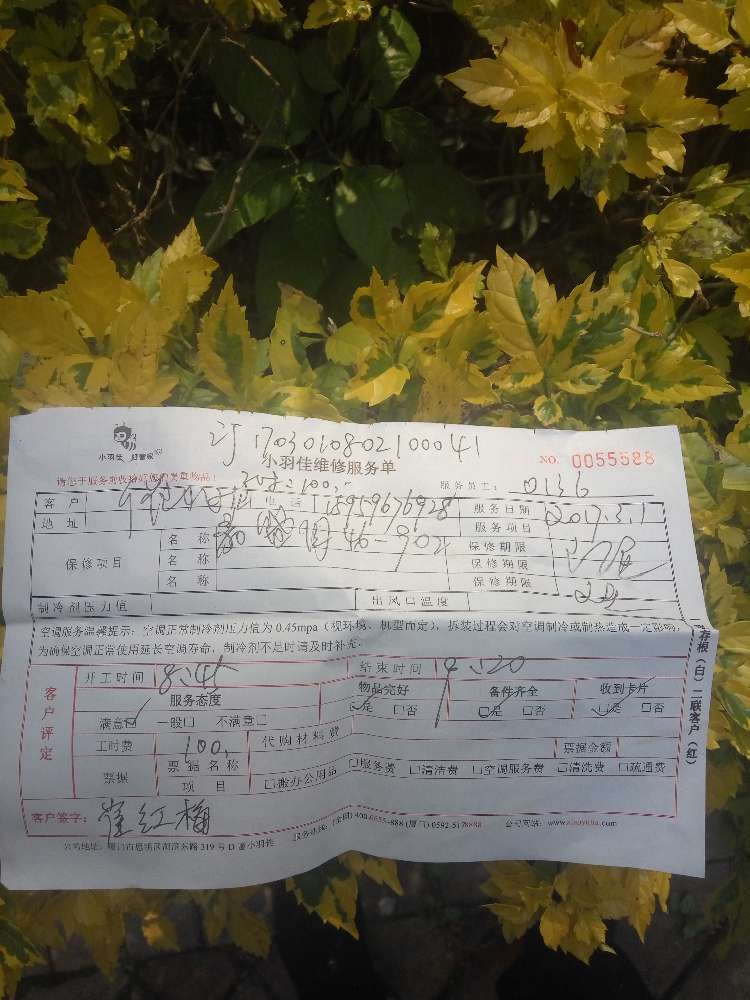 小羽佳 好管家
订 1703010802100041
小羽佳维修服务单
NO. 0055588
30元=100,-
服务员工: 0136
客户 电话 15959676928 服务日期 2017.3.1
地址 46-902 服务项目
保修项目 名称 保修期限
名称 保修期限
名称 保修期限
制冷剂压力值 出风口温度
空调服务温馨提示: 空调正常制冷剂压力值为 0.45mpa (视环境、机型而定), 拆装过程会对空调制冷或制热造成一定影响,
为确保空调正常使用延长空调寿命, 制冷剂不足时请及时补充。
存根(白) 二联客户(红)
客户评定
开工时间 8:45 结束时间 14:20
服务态度 物品完好 备件齐全 收到卡片
满意☑ 一般□ 不满意□ ☑是 □否 ☑是 □否 ☑是 □否
工时费 100,- 代购材料费 票据金额
票据 票据名称
项目 □缴办公用品 □服务费 □清洁费 □空调服务费 □清洗费 □疏通费
客户签字: 崔红梅
服务热线: (全国) 400-6655-888 (厦门) 0592-5178888 公司网站: www.xiaoyujia.com
公司地址: 厦门市思明区湖滨东路 319 号 D 座小羽佳